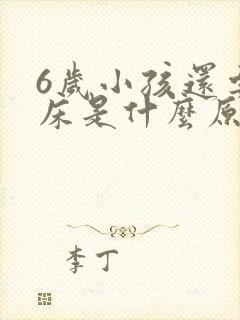 6歲小孩還
床是什麼原
李丁